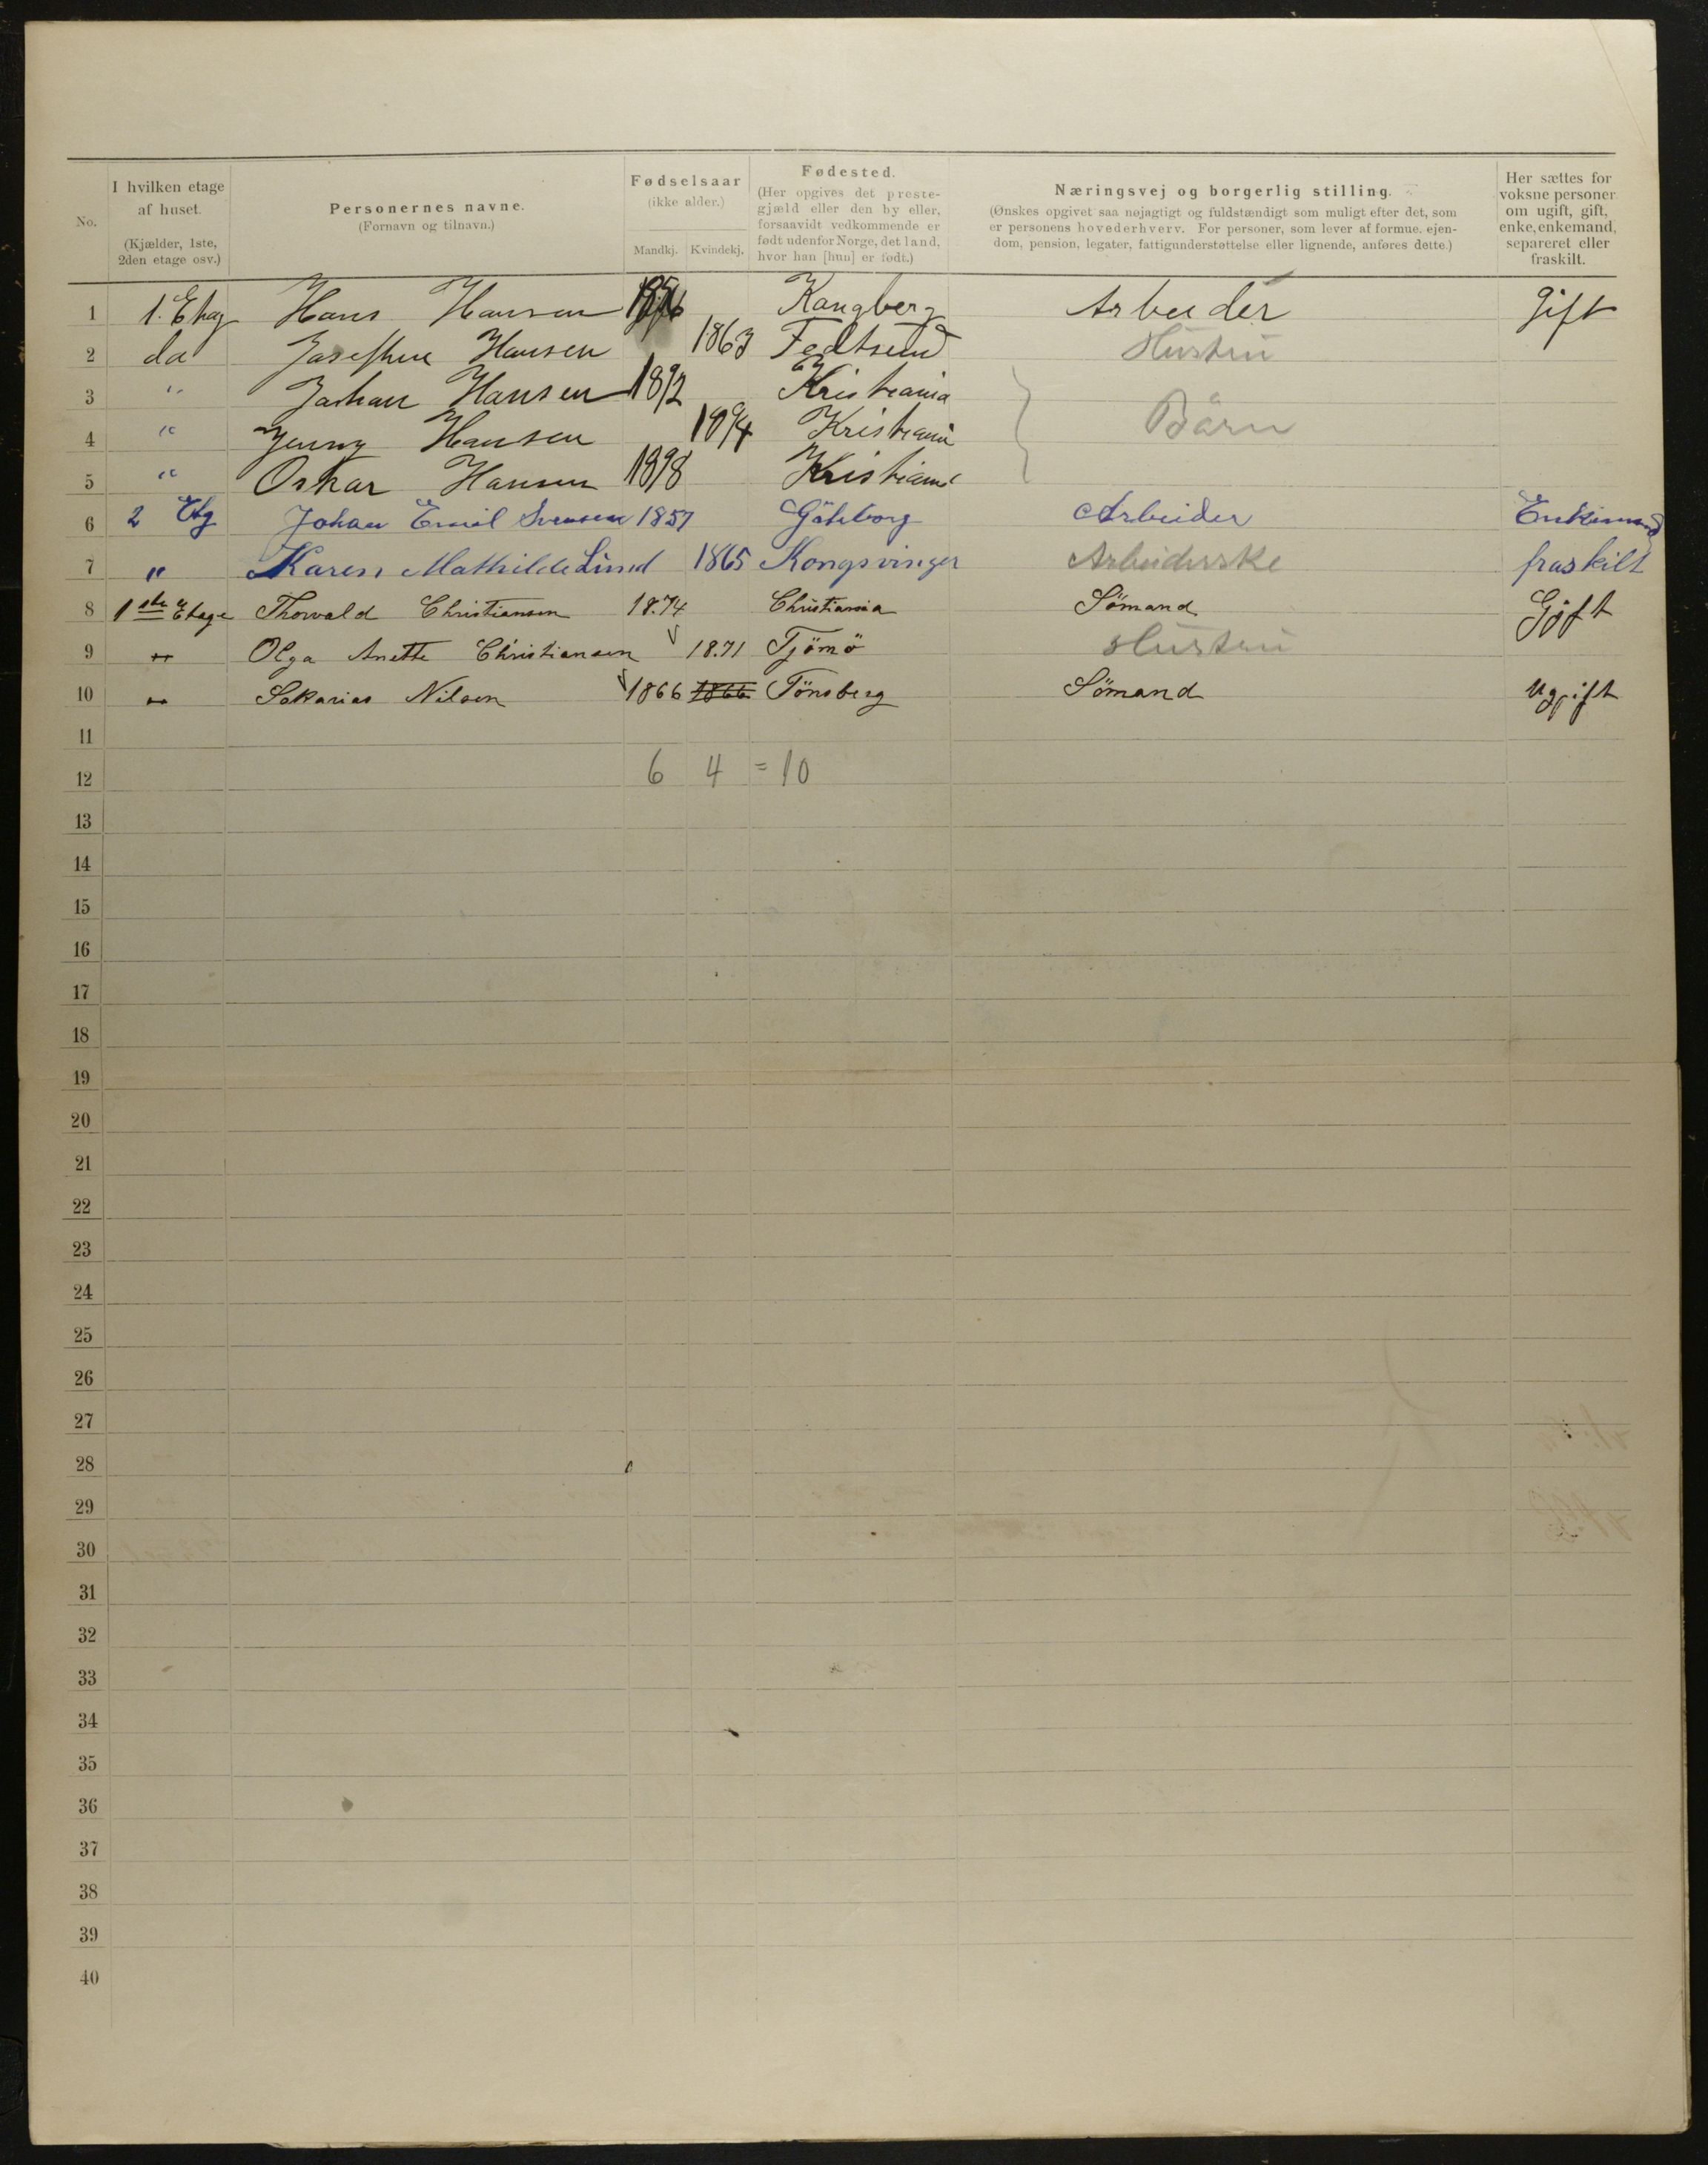 No.
I hvilken etage
af huset.
(Kjælder, 1ste,
2den etage osv.)
Personernes navne.
(Fornavn og tilnavn.)
Fødselsaar
(ikke alder.)
Mandkj. Kvindekj.
Fødested.
(Her opgives det preste-
gjæld eller den by eller,
forsaavidt vedkommende er
født udenfor Norge, det land,
hvor han [hun] er født.)
Næringsvej og borgerlig stilling.
(Ønskes opgivet saa nøjagtigt og fuldstændigt som muligt efter det, som
er personens hovederhverv. For personer, som lever af formue. ejen-
dom, pension, legater, fattigunderstøttelse eller lignende, anføres dette.)
Her sættes for
voksne personer
om ugift, gift,
enke, enkemand,
separeret eller
fraskilt.
1 1. Etag Hans Hansen Kongberg Arbeider gift
2 do Josefine Hansen 1863 Fedtsund Hustru
3 " Johan Hansen 1892 Kristiania
4 " Jenny Hansen 1894 Kristiania Børn
5 " Oskar Hansen 1898 Kristiania
6 2 Etg Johan Emil Svensen 1857 Göteborg Arbeider Enkemand
7 " Karen Mathilde Lund 1865 Kongsvinger Arbeiderske fraskilt
8 1ste Etage Thorvald Christiansen 18.74 Christiania Sömand Gift
9 " Olga Anette Christiansen 18.71 Tjömö Hustru
10 " Sakarias Nilsen 1866 1866 Tönsberg Sömand Ugift
11
12 6 4 = 10
13
14
15
16
17
18
19
20
21
22
23
24
25
26
27
28
29
30
31
32
33
34
35
36
37
38
39
40